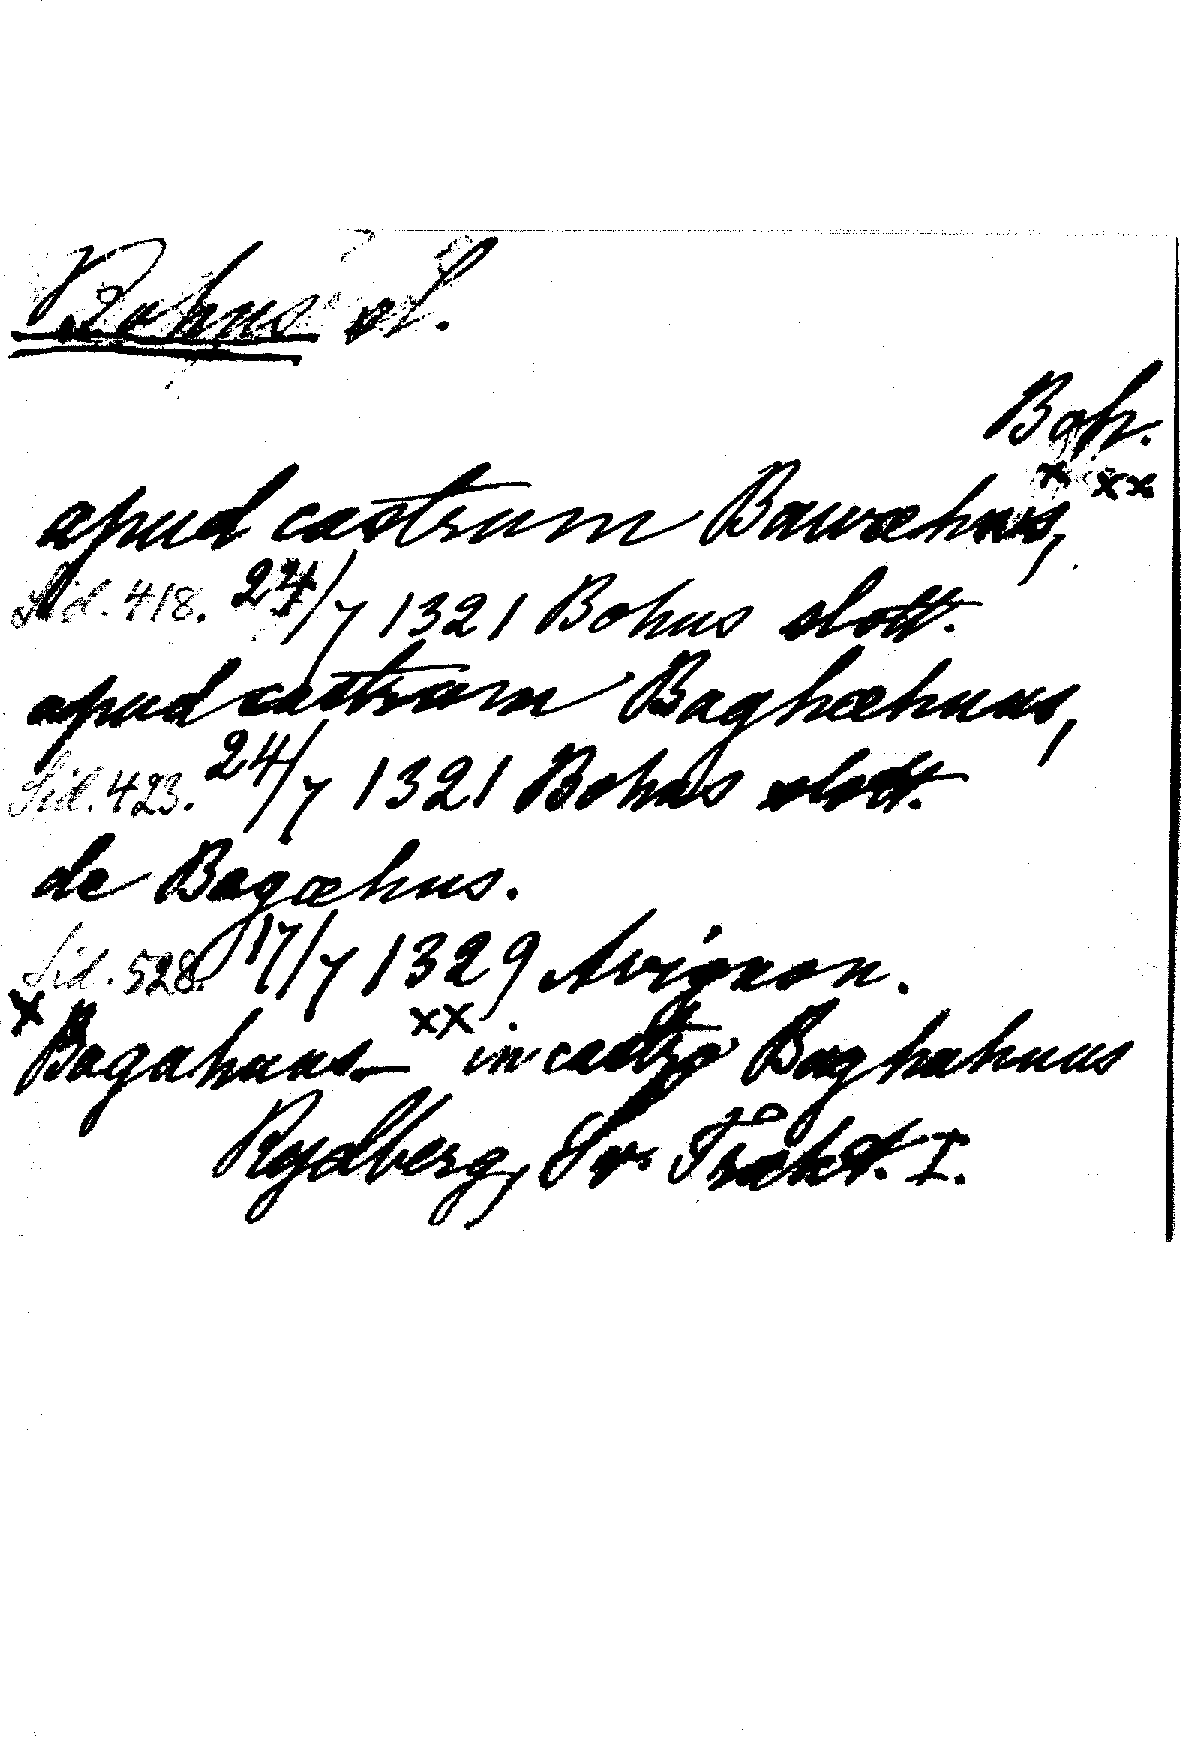 Bohus sl.
Boh.
apud castrum Bawæhws, x xx
Sid. 418. 24/7 1321 Bohus slott.
apud castrum Baghæhuus,
Sid. 423. 24/7 1321 Bohus slott.
de Bagæhus.
Sid. 528. 17/7 1329 Avignon.
x Bagahuus— xx in castro Baghahuus
Rydberg, Sv. Trakt. I.